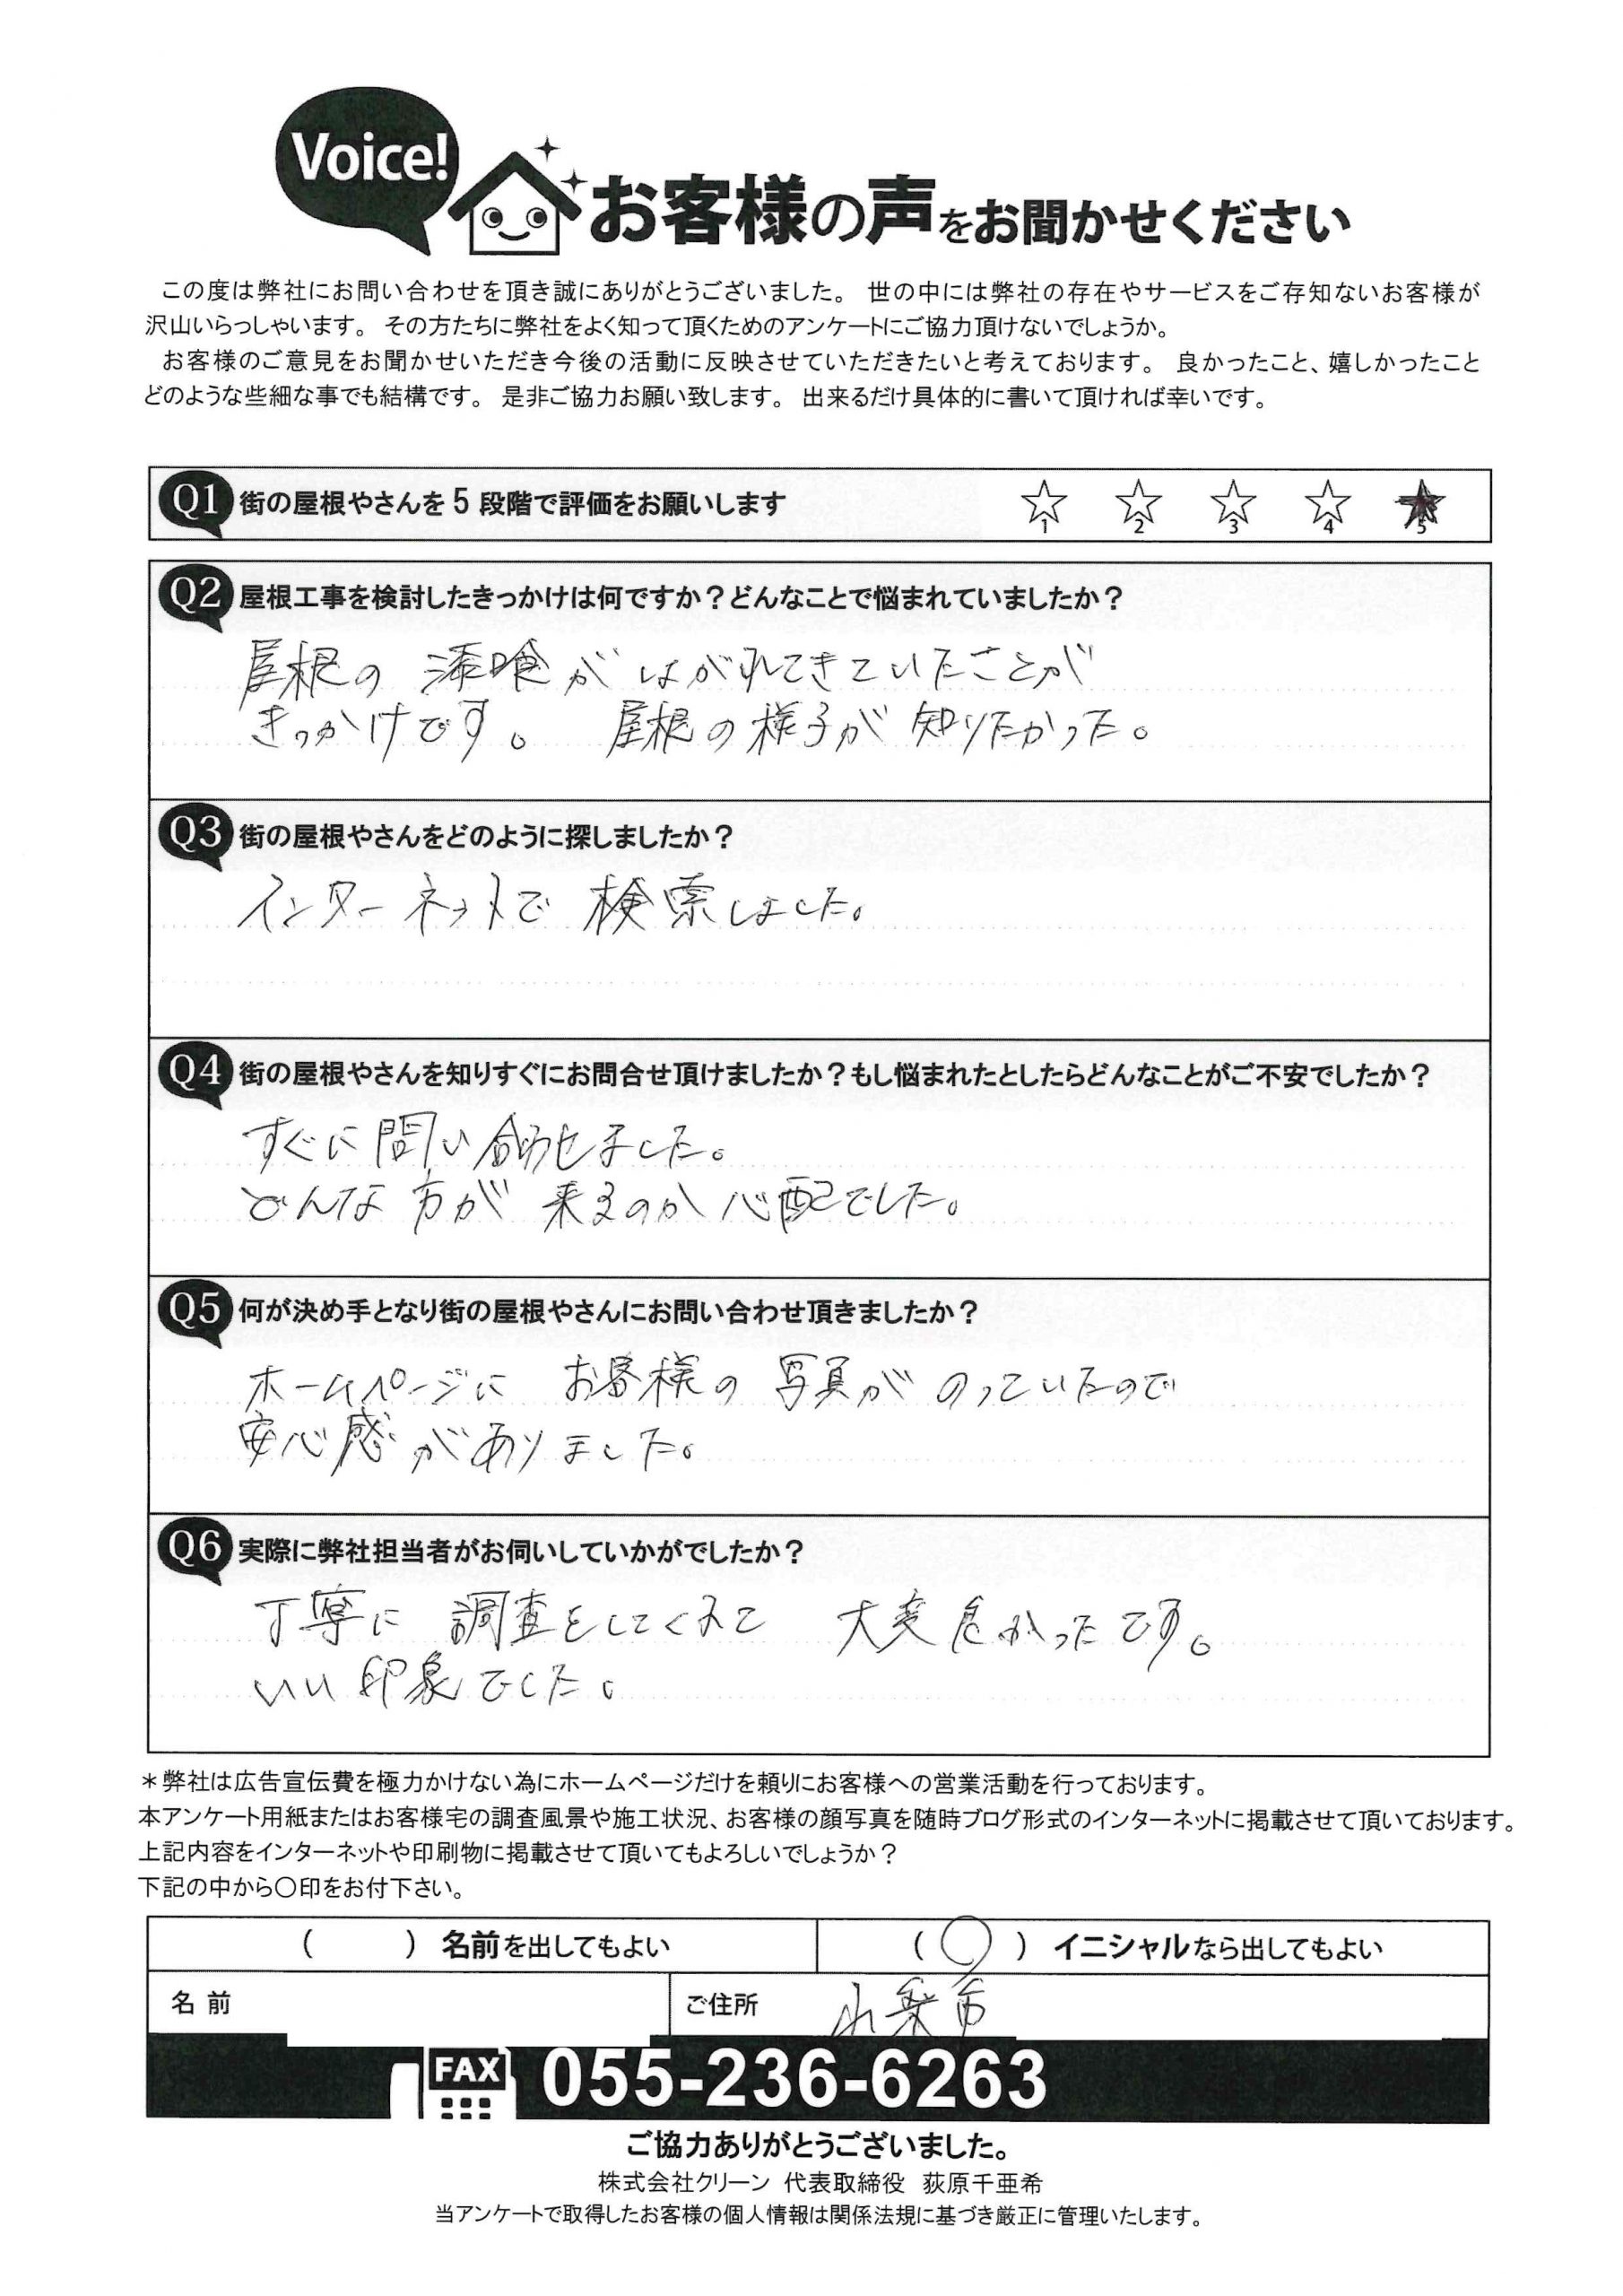 Voice!
お客様の声をお聞かせください
この度は弊社にお問い合わせを頂き誠にありがとうございました。 世の中には弊社の存在やサービスをご存知ないお客様が
沢山いらっしゃいます。 その方たちに弊社をよく知って頂くためのアンケートにご協力頂けないでしょうか。
お客様のご意見をお聞かせいただき今後の活動に反映させていただきたいと考えております。 良かったこと、嬉しかったこと
どのような些細な事でも結構です。 是非ご協力お願い致します。 出来るだけ具体的に書いて頂ければ幸いです。
Q1 街の屋根やさんを5段階で評価をお願いします ☆1 ☆2 ☆3 ☆4 ★5
Q2 屋根工事を検討したきっかけは何ですか？どんなことで悩まれていましたか？
屋根の 漆喰が はがれてきていたことが
きっかけです。 屋根の様子が 知りたかった。
Q3 街の屋根やさんをどのように探しましたか？
インターネットで 検索しました。
Q4 街の屋根やさんを知りすぐにお問合せ頂けましたか？もし悩まれたとしたらどんなことがご不安でしたか？
すぐに問い合わせました。
どんな方が 来るのか心配でした。
Q5 何が決め手となり街の屋根やさんにお問い合わせ頂きましたか？
ホームページに お客様の 写真が のっていたので
安心感がありました。
Q6 実際に弊社担当者がお伺いしていかがでしたか？
丁寧に 調査をしてくれて 大変良かったです。
いい印象でした。
＊弊社は広告宣伝費を極力かけない為にホームページだけを頼りにお客様への営業活動を行っております。
本アンケート用紙またはお客様宅の調査風景や施工状況、お客様の顔写真を随時ブログ形式のインターネットに掲載させて頂いております。
上記内容をインターネットや印刷物に掲載させて頂いてもよろしいでしょうか？
下記の中から〇印をお付下さい。
（　　）名前を出してもよい （〇）イニシャルなら出してもよい
名前 ご住所 山梨市
FAX 055-236-6263
ご協力ありがとうございました。
株式会社クリーン 代表取締役 荻原千亜希
当アンケートで取得したお客様の個人情報は関係法規に基づき厳正に管理いたします。